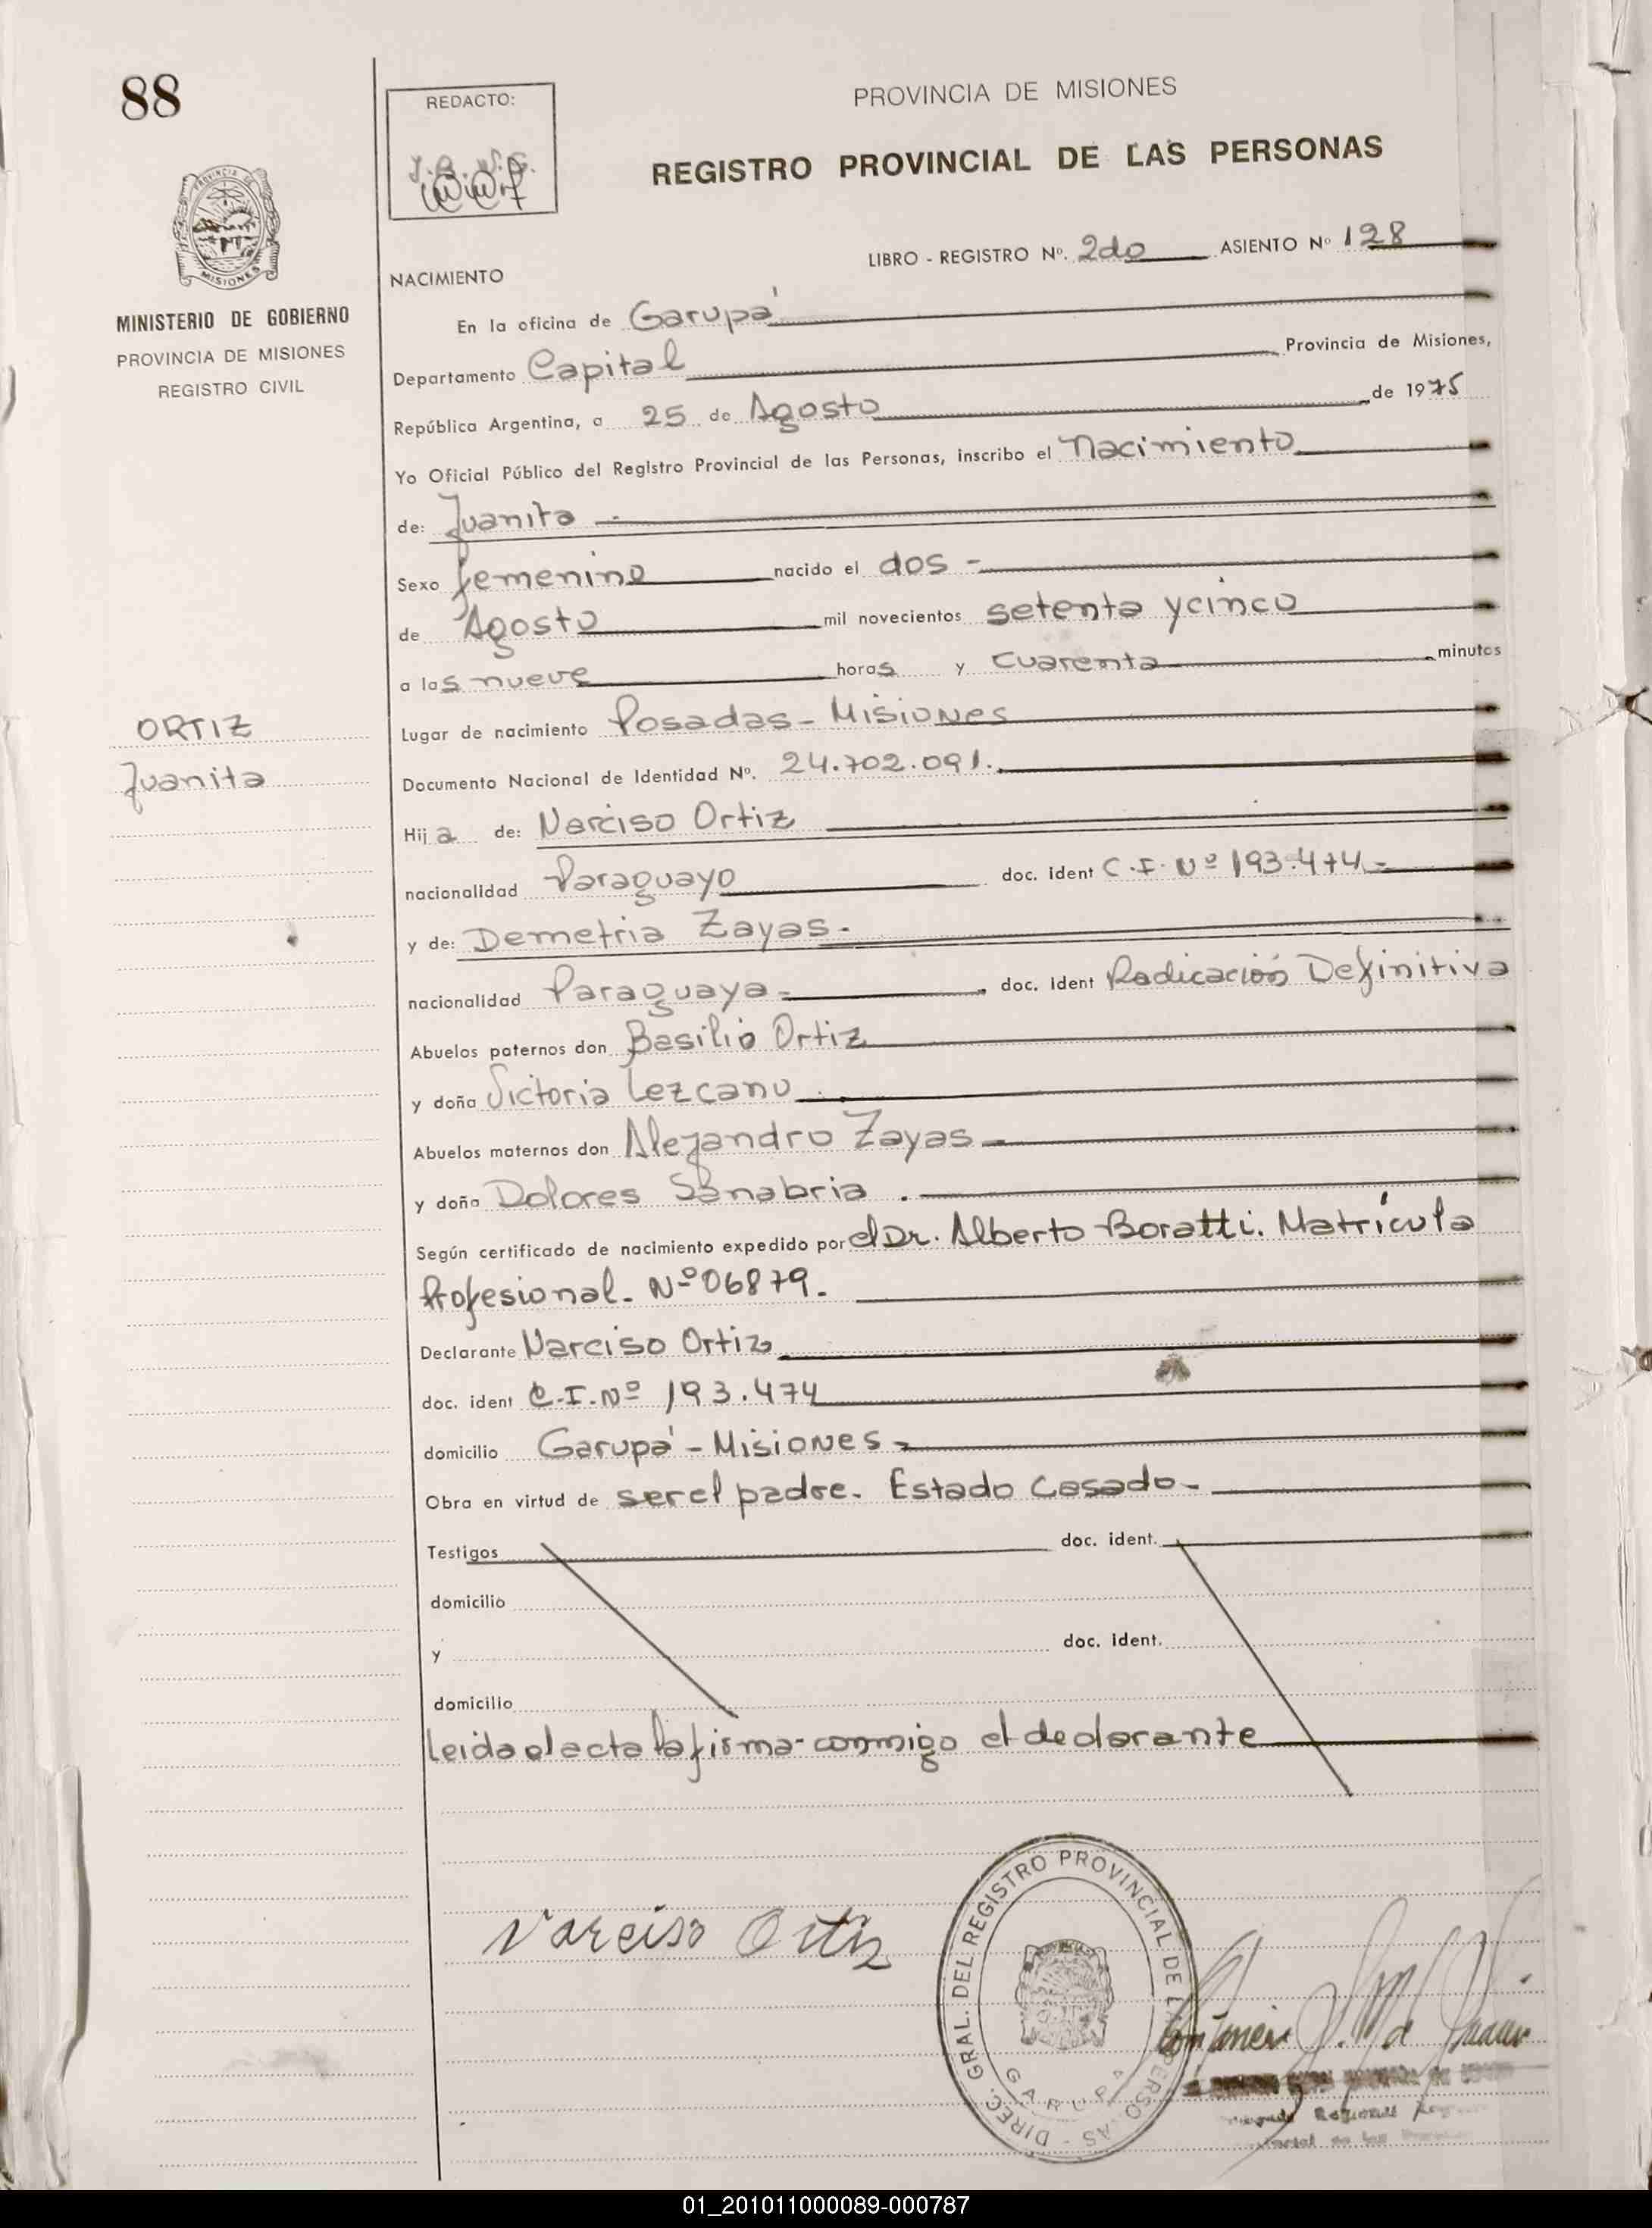 88
REDACTO:
PROVINCIA DE MISIONES
REGISTRO PROVINCIAL DE LAS PERSONAS
PROVINCIA DE
MISIONES
MINISTERIO DE GOBIERNO
PROVINCIA DE MISIONES
REGISTRO CIVIL
LIBRO - REGISTRO Nº. 2do ASIENTO Nº 128
NACIMIENTO
En la oficina de Garupá
Departamento Capital Provincia de Misiones,
República Argentina, a 25 de Agosto de 1975
Yo Oficial Público del Registro Provincial de las Personas, inscribo el Nacimiento
de: Juanita
Sexo femenino nacido el dos -
de Agosto mil novecientos setenta y cinco
a las nueve horas y cuarenta minutos
ORTIZ
Juanita
Lugar de nacimiento Posadas - Misiones
Documento Nacional de Identidad Nº. 24.702.091.
Hija de: Narciso Ortiz
nacionalidad Paraguayo doc. ident C.I. Nº 193.474-
y de: Demetria Zayas.-
nacionalidad Paraguaya- doc. ident Radicación Definitiva
Abuelos paternos don Basilio Ortiz
y doña Victoria Lezcano
Abuelos maternos don Alejandro Zayas
y doña Dolores Sanabria .
Según certificado de nacimiento expedido por el Dr. Alberto Boratti. Matrícula
Profesional. Nº 06879.
Declarante Narciso Ortiz
doc. ident C.I. Nº 193.474
domicilio Garupá - Misiones -
Obra en virtud de ser el padre. Estado Casado-
Testigos doc. ident.
domicilio
y doc. ident.
domicilio
Leida el acta la firma conmigo el declarante
Narciso Ortiz
DIREC. GRAL. DEL REGISTRO PROVINCIAL DE LAS PERSONAS
GARUPA
01_201011000089-000787